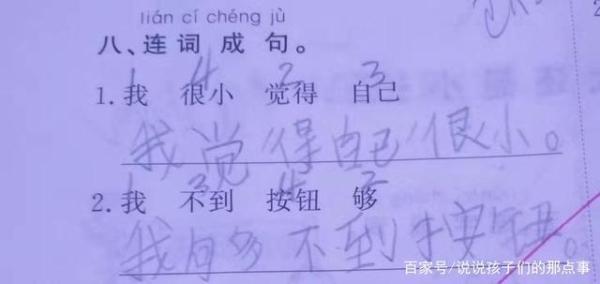 lián cí chéng jù
八、连 词 成 句。
1 4 2 3
1. 我 很小 觉得 自己
我觉得自己很小。
1 3 4 2
2. 我 不到 按钮 够
我够不到按钮。
百家号/说说孩子们的那点事